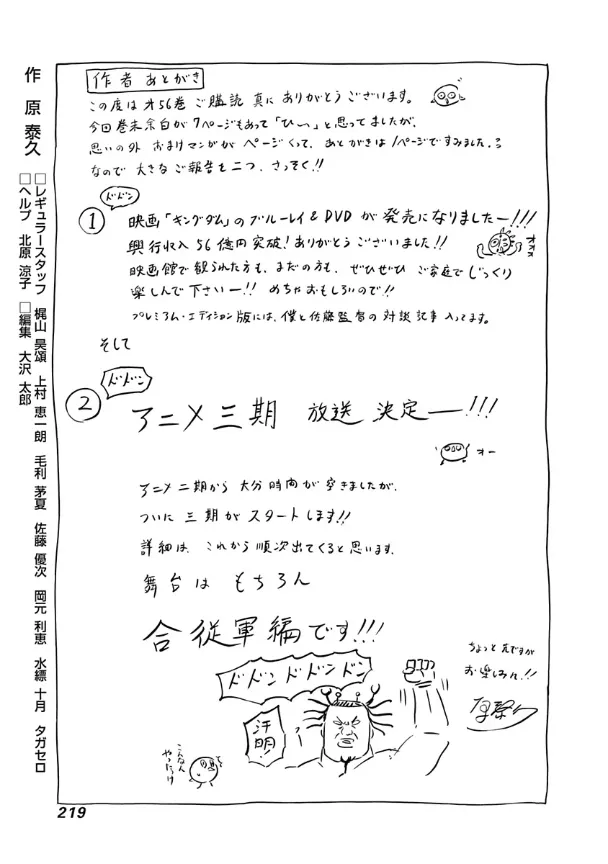 作者あとがき
この度は才56巻 ご購読 真に ありがとうございます。
今回巻末余白が7ページもあって「ひ〜」と思ってましたが、
思いの外 おまけマンガが ページくって、あとがきは1ページですみました。
なので 大きな ご報告を二つ、さっそく!!
ドドン
① 映画「キングダム」のブルーレイ&DVDが発売になりましたー!!!
興行収入56億円突破!ありがとうございました!!
オオオ
映画館で観られた方も、まだの方も、ぜひぜひ ご家庭でじっくり
楽しんで下さいー!! めちゃおもしろいので!!
プレミアム・エディション版には、僕と佐藤監督の対談記事入ってます。
そして
ドドン
② アニメ三期 放送 決定ー!!!
オー
アニメ二期から 大分時間が空きましたが、
ついに 三期が スタートします!!
詳細は、これから順次出てくると思います。
舞台は もちろん
合従軍編です!!!
ちょっと先ですが
お楽しみに!!
原泰久
ドドン ドドンドン
汗明!
こんなん
やったっけ
作 原 泰久
□レギュラースタッフ 梶山 昊頌 上村 恵一朗 毛利 茅夏 佐藤 優次 岡元 利恵 水縹 十月 タガセロ
□ヘルプ 北原 涼子 □編集 大沢 太郎
219